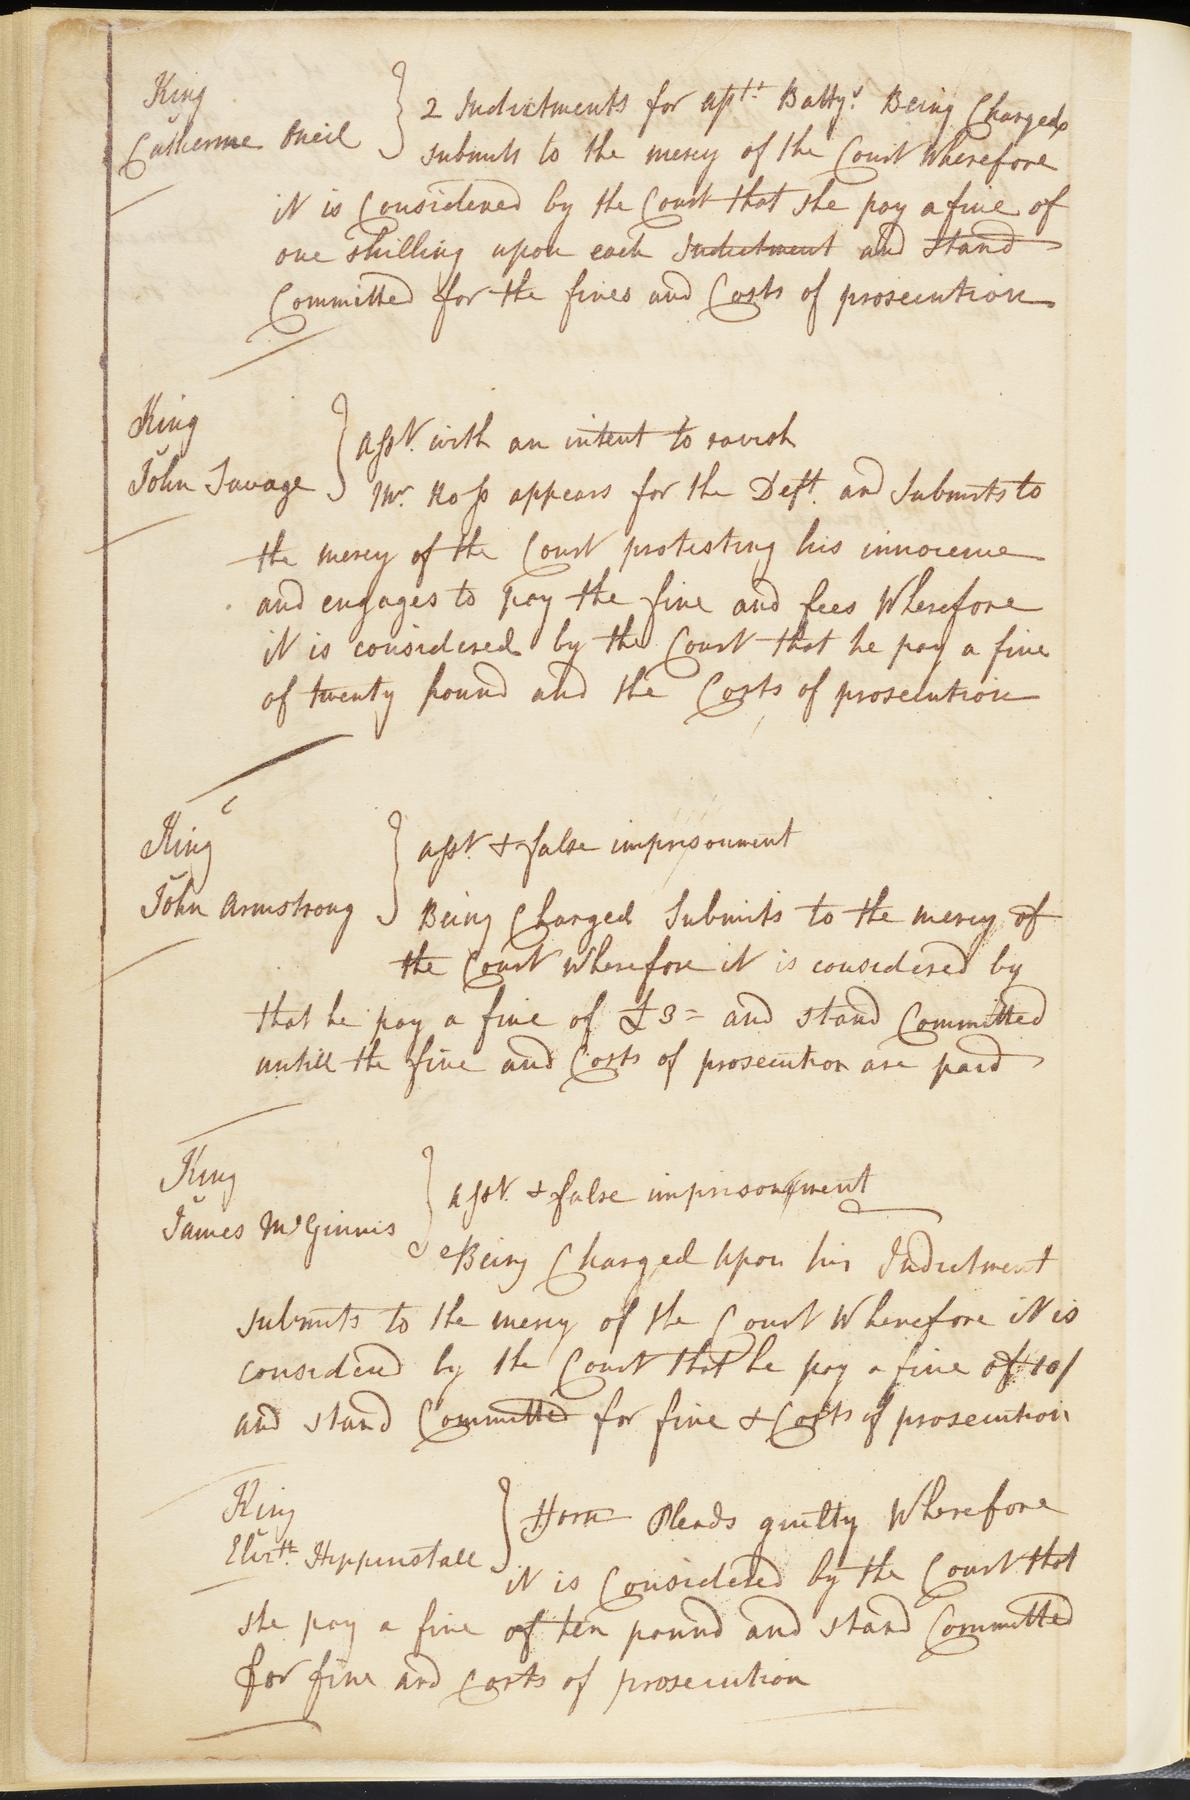 King
v
Catherine Oneil
2 Indictments for asstt. Batty. Being Charged
submits to the mercy of the Court Wherefore
it is Considered by the Court that she pay a fine of
one shilling upon each Indictment and stand
Committed for the fines and Costs of prosecution
King
v
John Savage
asst. with an intent to ravish
Mr. Ross appears for the Deft. and Submits to
the mercy of the Court protesting his innocence
and engages to pay the fine and fees Wherefore
it is considered by the Court that he pay a fine
of twenty pound and the Costs of prosecution
King
v
John Armstrong
asst. & false imprisonment
Being Charged Submits to the mercy of
the Court Wherefore it is considered by
that he pay a fine of £3= and stand Committed
untill the fine and Costs of prosecution are paid
King
v
James McGinnis
asst. & false imprisonment
Being Charged Upon his Indictment
submits to the mercy of the Court Wherefore it is
considered by the Court that he pay a fine of 10/
and stand Committed for fine & Costs of prosecution
King
v
Elizth. Heppenstall
Pleads guilty Wherefore
it is Considered by the Court that
she pay a fine of ten pound and stand Committed
for fine and Costs of prosecution